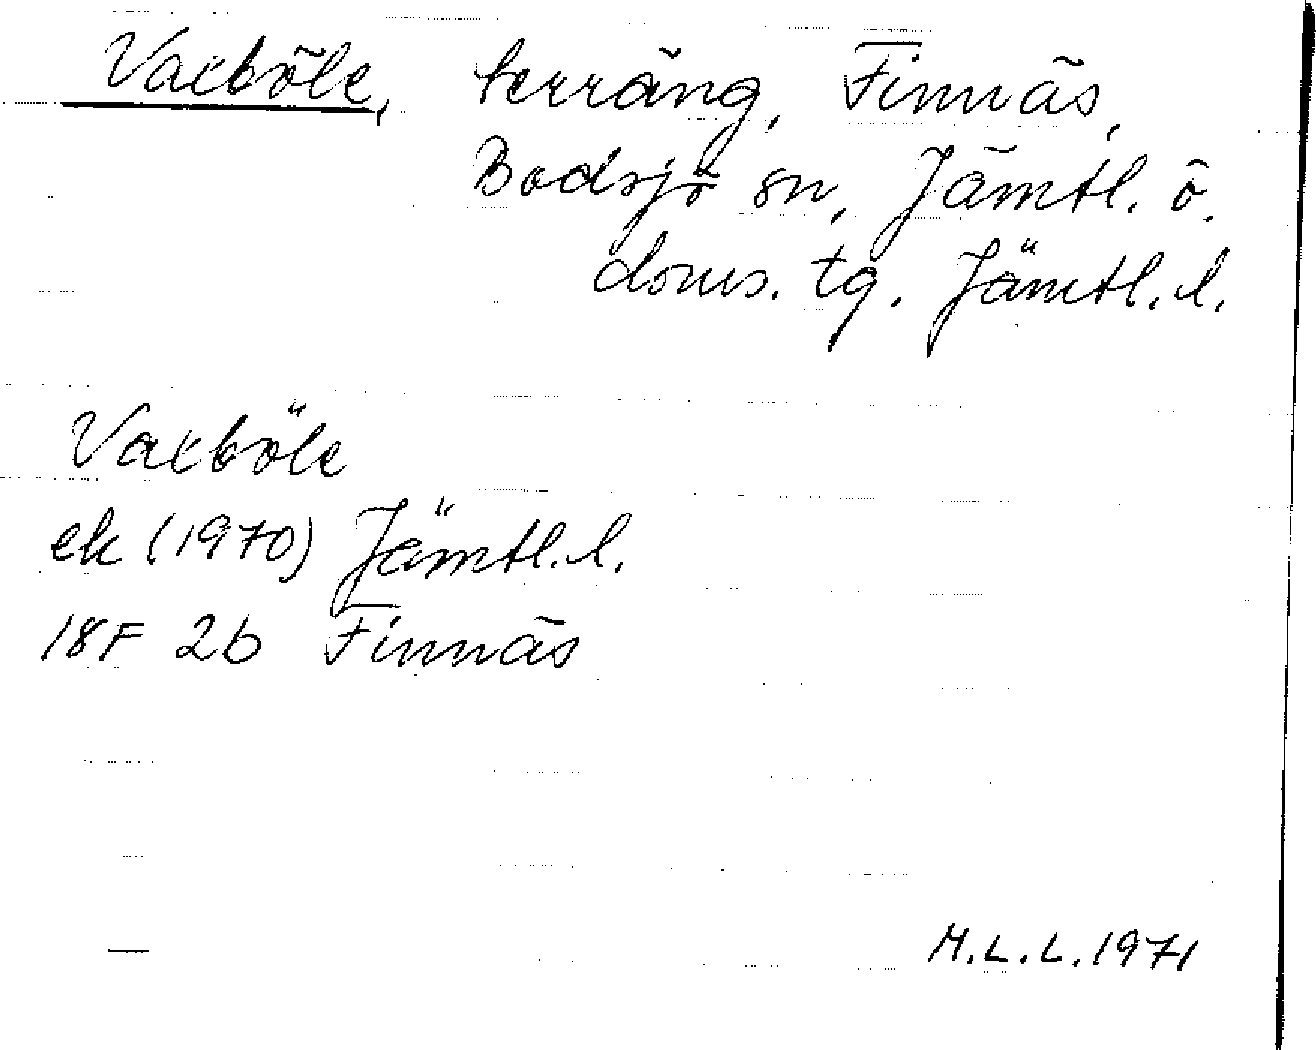 Vaxböle, terräng, Finnäs,
Bodsjö sn, Jämtl. ö.
doms. tg. Jämtl. l.
Vaxböle
ek (1970) Jämtl. l.
18F 2b Finnäs
M.L.L. 1971